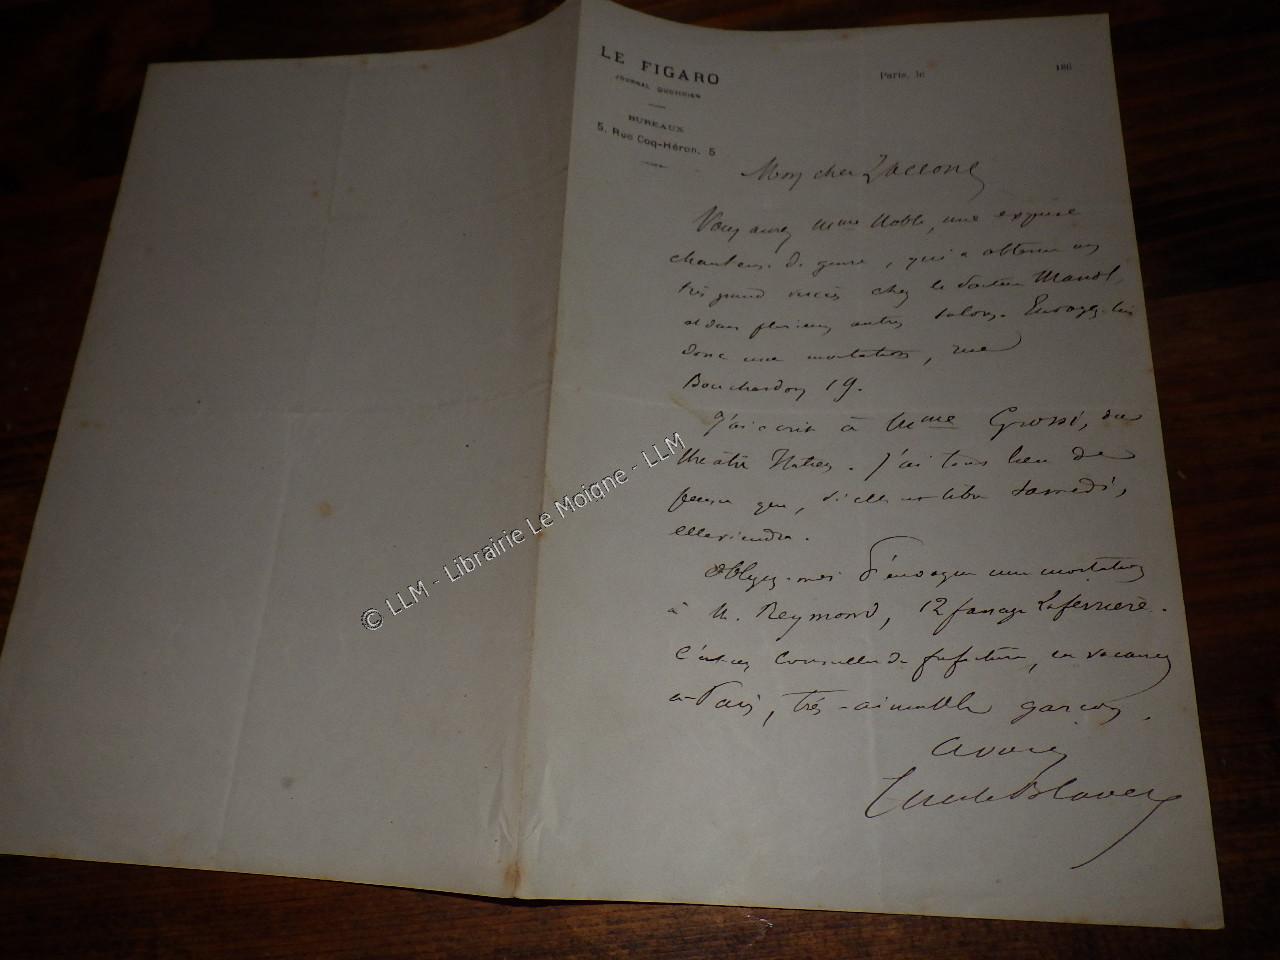 LE FIGARO
JOURNAL QUOTIDIEN
BUREAUX
5, Rue Coq-Héron, 5
Paris, le 186
Mon cher Zaccone
Vous aurez Mme Noble, une exquise
chanteuse de genre, qui a obtenu un
très grand succès chez le docteur Mandl,
et dans plusieurs autres salons. Envoyez-lui
donc une invitation, rue
Bouchardon 19.
J'ai écrit à Mme Grossi, du
théâtre Italien. J'ai tout lieu de
penser que, si elle est libre samedi,
elle viendra.
Obligez-moi d'envoyer une invitation
à M. Reymond, 12 passage Laferrière.
C'est un Conseiller de préfecture, en vacances
à Paris, très-aimable garçon.
à vous
Emile Blavet
© LLM - Librairie Le Moigne - LLM